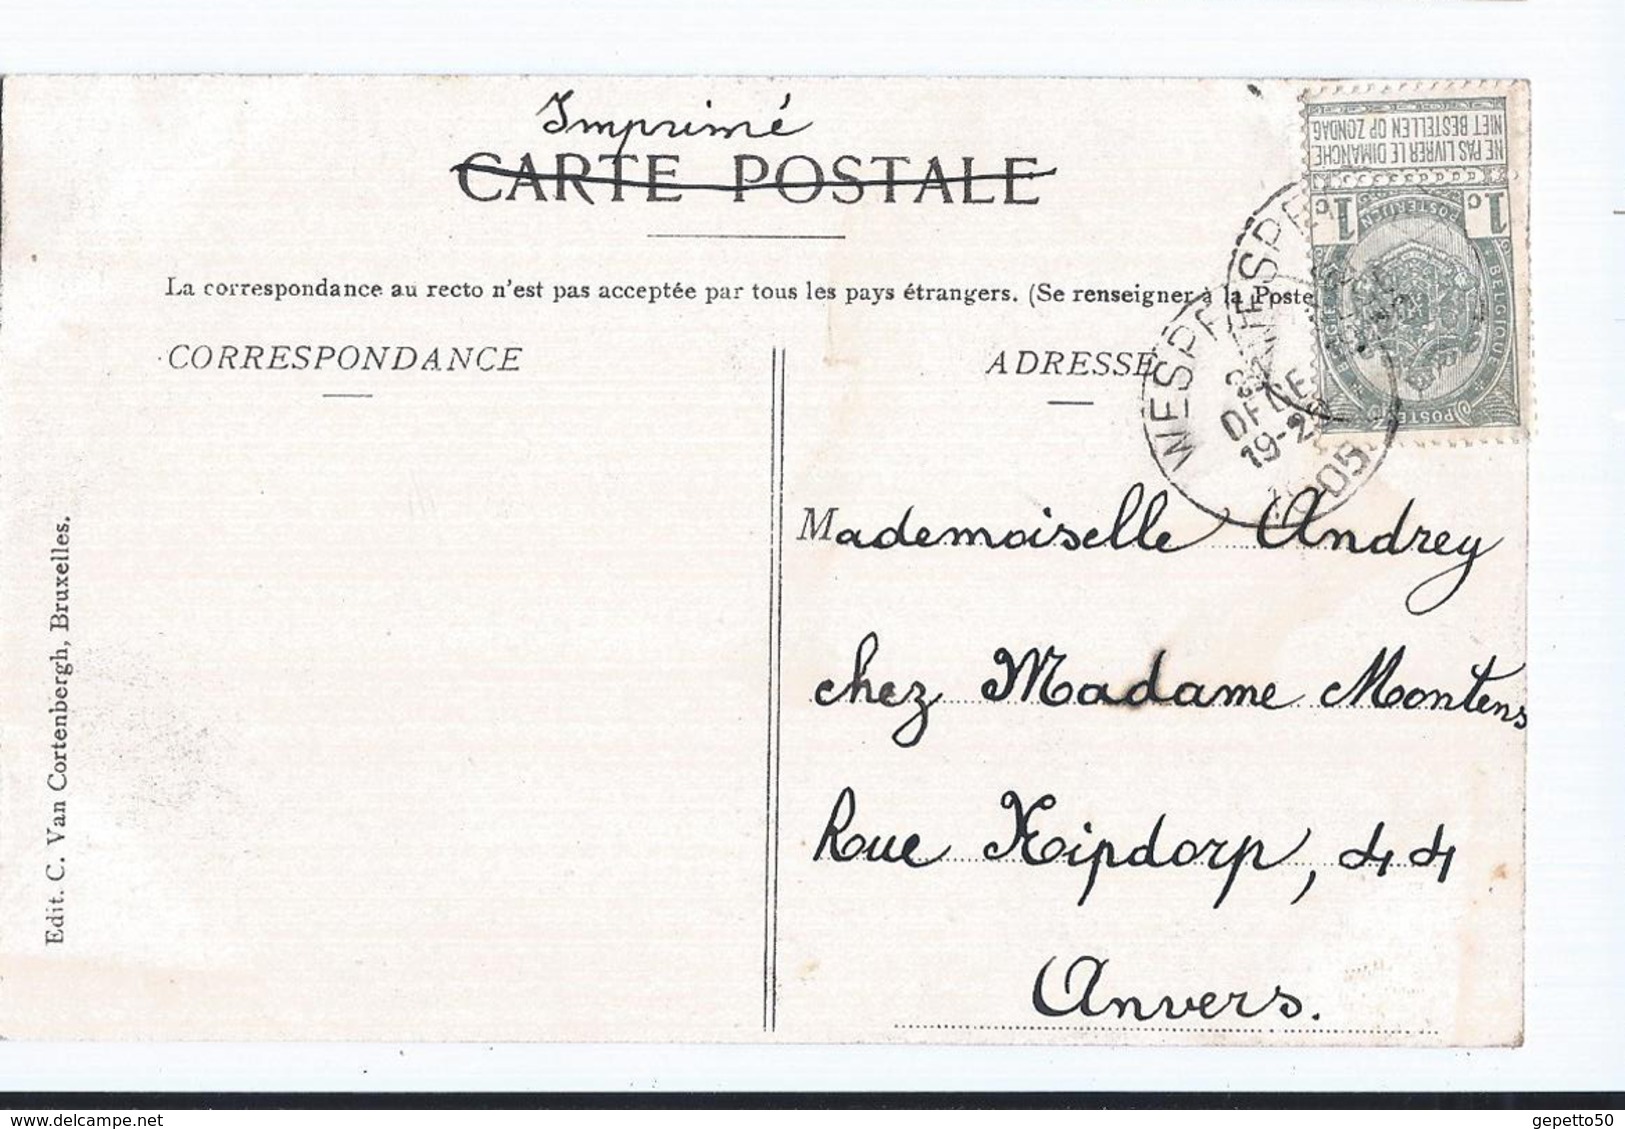 Imprimé
CARTE POSTALE
La correspondance au recto n'est pas acceptée par tous les pays étrangers. (Se renseigner à la Poste
CORRESPONDANCE
ADRESSE
NE PAS LIVRER LE DIMANCHE
NIET BESTELLEN OP ZONDAG
1c 1c
POSTERIJEN
BELGIQUE
POSTES
WESPE
19-20
Mademoiselle Andrey
chez Madame Montens
Rue Kipdorp, 44
Anvers.
Edit. C. Van Cortenbergh, Bruxelles.
gepetto50